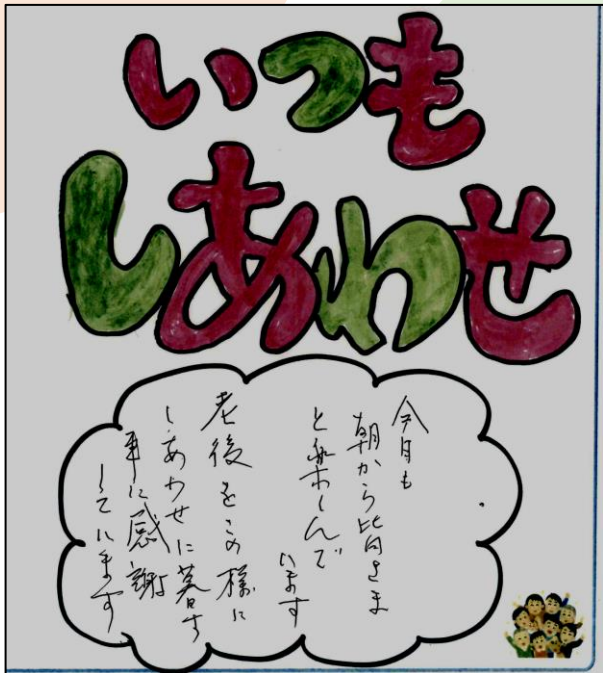 いつも
しあわせ
今日も
朝から皆さま
と楽しんで
います
老後をこの様に
しあわせに暮す
事に感謝
しています